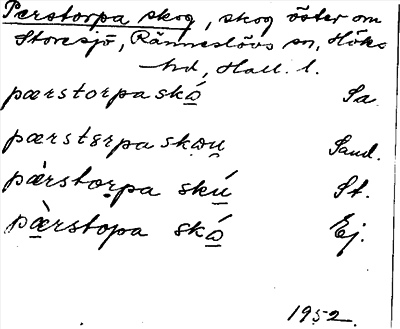 Perstorpa skog, skog öster om
Storesjö, Ränneslövs sn, Höks
hd, Hall. l.
pærstorpa skó̲ Sa.
pærstɛrpa skəu̲ Sand.
pæ̀rstorpa skú̲ St.
pæ̀rstopa skó̲ Ej.
1952.